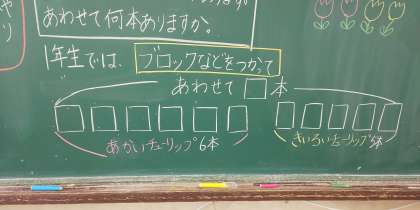 やり
あわせて何本ありますか。
1年生では、ブロックなどをつかって
あわせて□本
あかいチューリップ6本
きいろいチューリップ5本